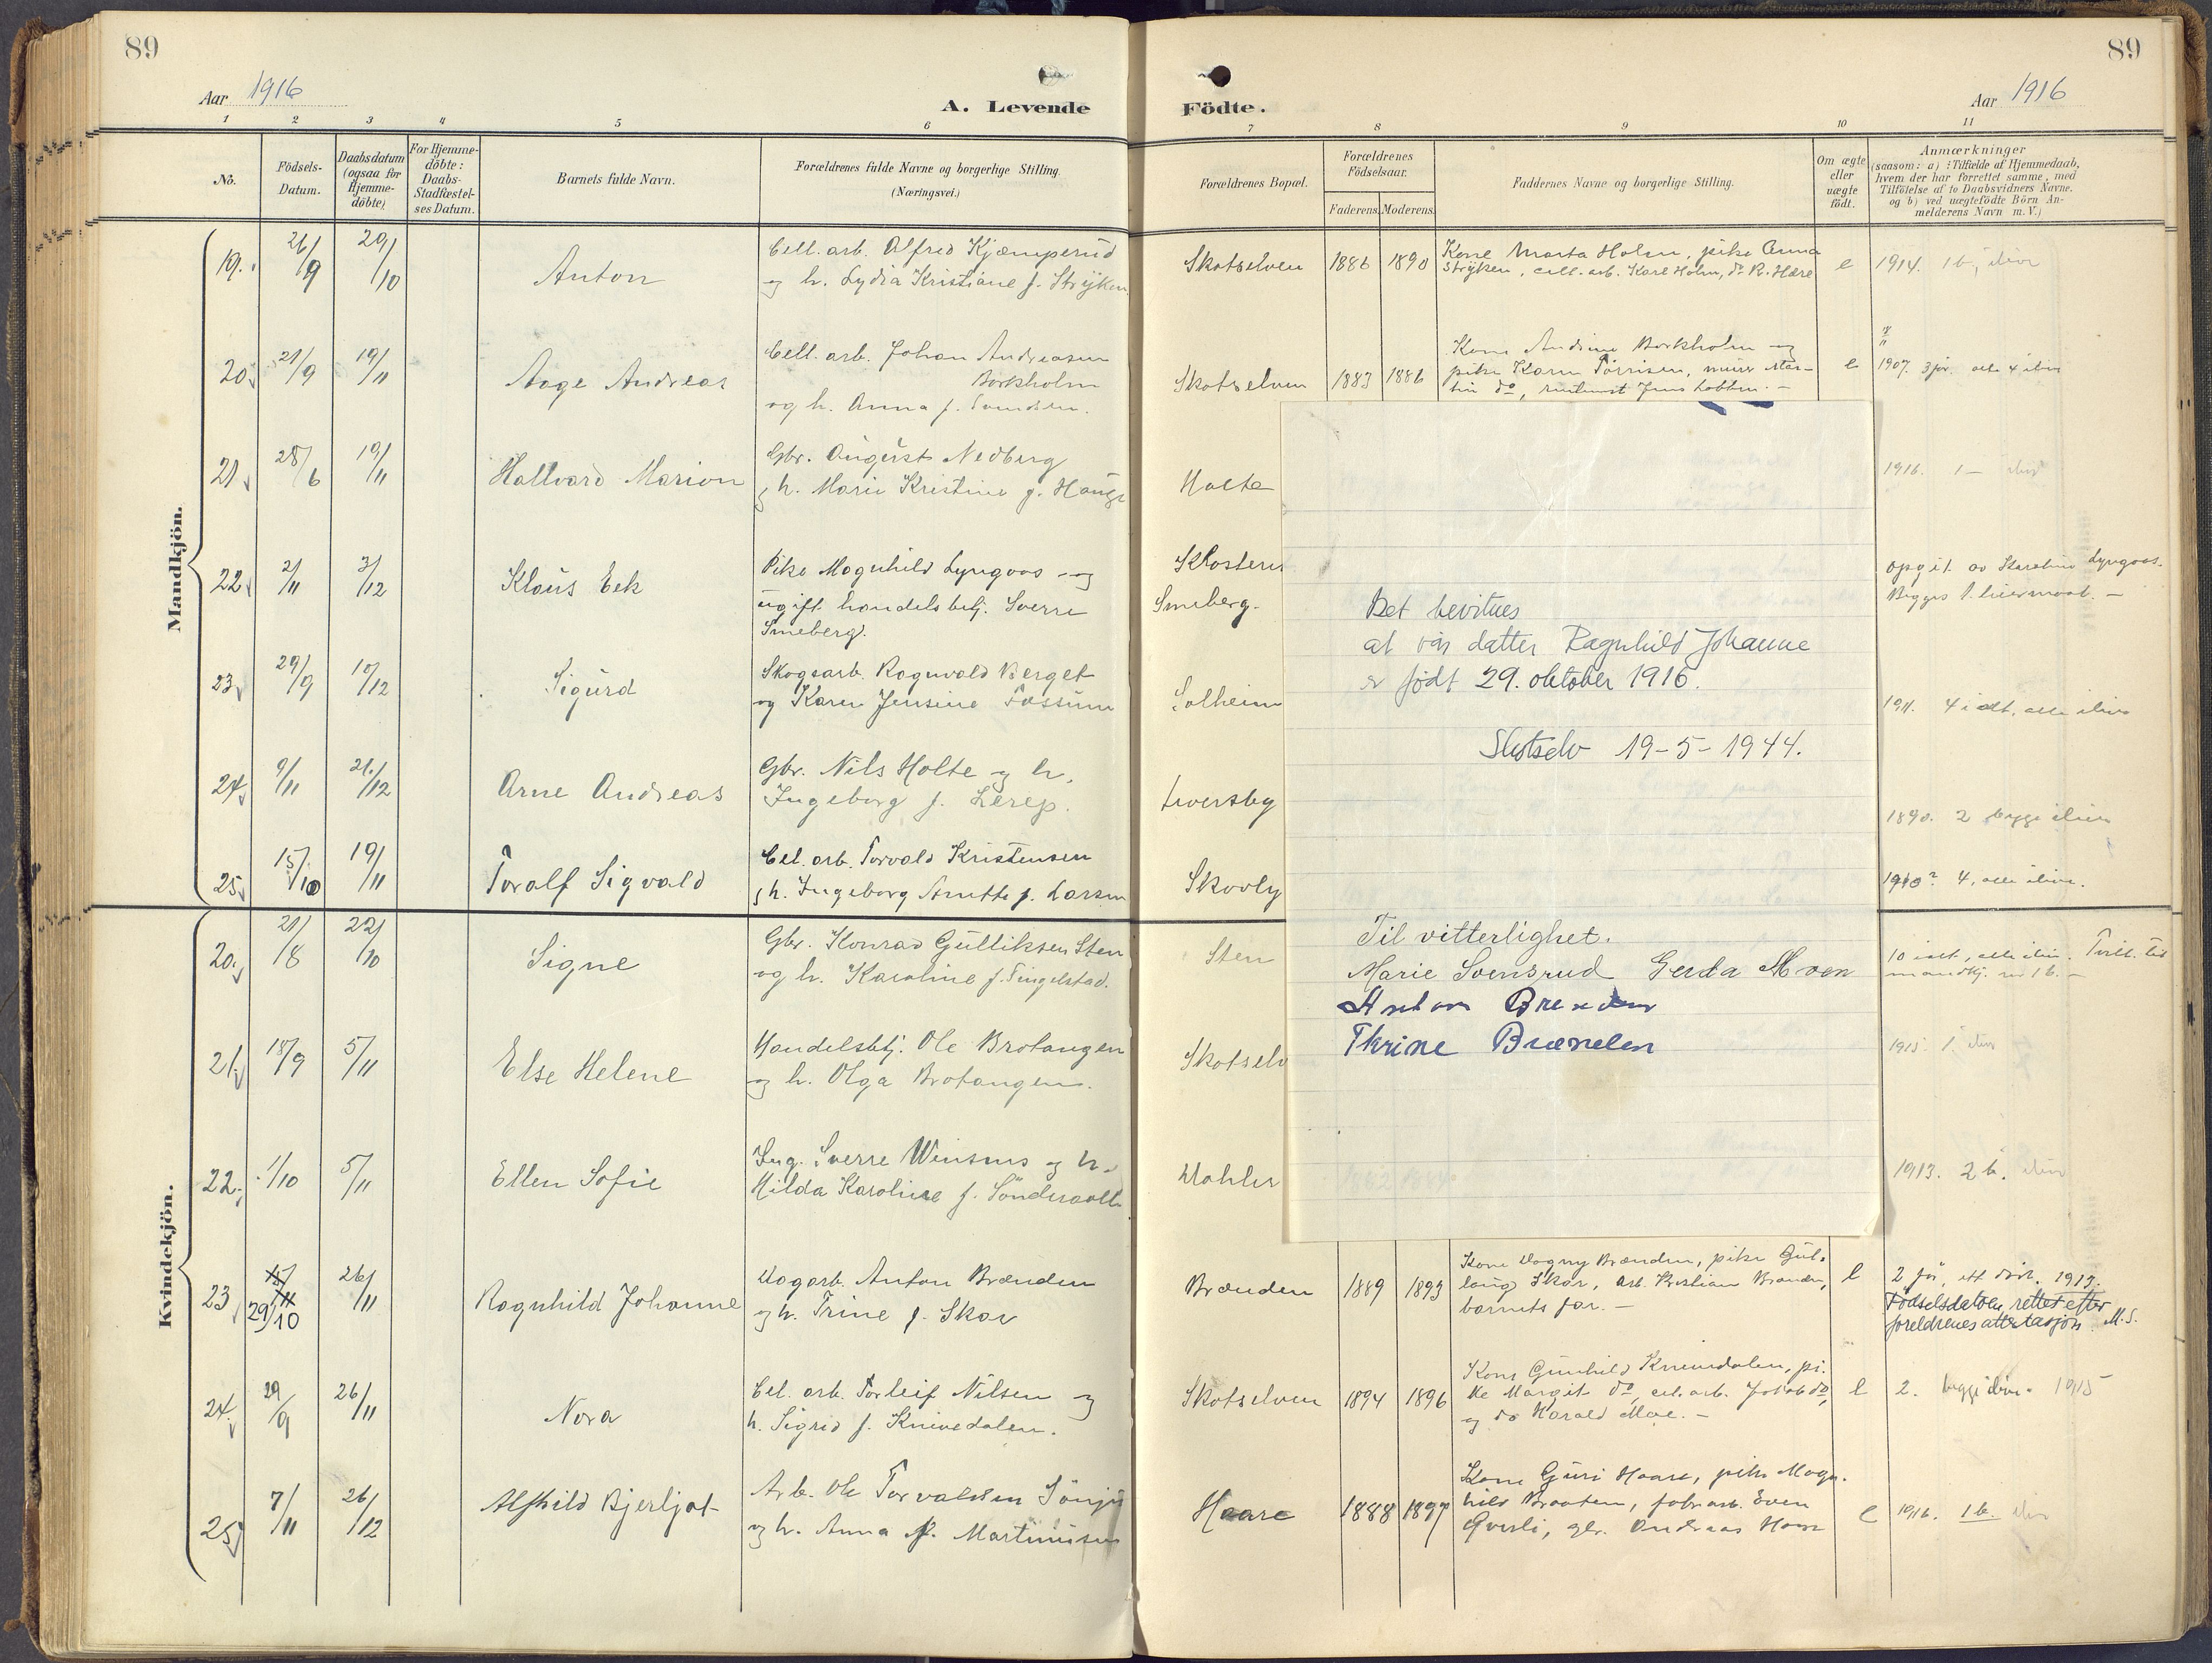 89
Aar 1916
A. Levende
1 2 3 4 5 6
No.
Födsels-
Datum.
Daabsdatum
(ogsaa for
Hjemme-
döbte).
For Hjemme-
döbte:
Daabs-
Stadfæstel-
ses Datum.
Barnets fulde Navn.
Forældrenes fulde Navne og borgerlige Stilling.
(Næringsvei.)
Mandkjön.
19. 26/9 29/10 Anton
Cell. arb. Alfred Kjæmperud
og h. Lydia Kristiane f. Stryken
20 21/9 19/11 Aage Andreas
Cell. arb. Johan Andreasen
Borkholm
og h. Anna f.
21 28/6 19/11 Hallvard Marion
Gbr. August Nedberg
h. Marie Kristine f. Hauge
22 2/11 3/12 Klaus Eek
Pike Magnhild Lyngaas og
ugift handelsbetj. Sverre
Smeberg.
23 29/9 10/12 Sigurd
Skogsarb. Ragnvald Berget
og Karen Jensine Fossum
24 9/11 26/12 Arne Andreas
Gbr. Nils Holte og h.
Ingeborg f. Lerep.
25 15/10 19/11 Toralf Sigvald
Cel. arb. Torvald Kristensen
h. Ingeborg f. Larsen
Kvindekjön.
20. 21/8 22/10 Signe
Gbr. Konrad Gulliksen Sten
og h. Karoline f. Fingelstad.
21. 18/9 5/11 Else Helene
Handelsbetj. Ole Brotangen
og h. Olga Brotangen.
22. 1/10 5/11 Ellen Sofie
Ing. Sverre Winsnes og h.
Hilda Karoline f.
23 29/10 26/11 Ragnhild Johanne
Dagarb. Anton Brænden
og h. Trine f. Skar
24. 29/9 26/11 Nora
Cel. arb. Torleif Nilsen og
h. Sigrid f. Knivedalen.
25 7/11 26/12 Alfhild Bjerljot
Arb. Ole Torvaldsen
og h. Anna f. Martinisen
89
Födte.
Aar 1916
7 8 9 10 11
Forældrenes Bopæl.
Forældrenes
Födselsaar.
Faderens. Moderens.
Faddernes Navne og borgerlige Stilling.
Om ægte
eller
uægte
födt.
Anmærkninger
(saasom: a) i Tilfælde af Hjemmedaab,
hvem der har forrettet samme, med
Tilföielse af to Daabsvidners Navne.
og b) ved uægtefödte Börn An-
melderens Navn m. V.)
Skotselven 1886 1890
Kone Marta Holm, pike Anna
Stryken, cell. arb. Karl Holm, do R. Hære
e 1914. 1 b, ilive
Skotselven 1883 1886
Kone Andrine Borkholm og
pike Karen
e 1907. 3 før. alle 4 ilive
Holte
1916. 1 –
Klostern
Smeberg.
opgit av Lyngaas.
Solheim
1911. 4 i alt, alle ilive
Liversby
1890. 2 begge ilive
Skovly
1910? 4, alle ilive.
Sten
10 ialt, alle ilive. Tvill. til
mandkj. nr 16. –
Skotselv
1915. 1.
Dahler
1913. 2 b. ilive
Brænden 1889 1893
Kone Dagny Brænden, pike Gul-
laug Skar, arb. Kristian Brænden,
barnets far. –
e 2 før, ett død. 1912.
Födselsdatoen rettet efter
foreldrenes attestasjon. M.S.
Skotselven 1894 1896
Kone Gunhild Knivedalen, pi-
ke Margit do, cel. arb. Jakob do,
og do Harald Moe. –
e 2. begge ilive. 1915
Haare 1888 1897
Kone Guri Haare, pike Magn-
hild Braaten, fabr. arb. Even
Qverli, gbr. Andreas Haare
e 1916. 1 b. ilive
Det bevitnes
at vår datter Ragnhild Johanne
er født 29. oktober 1916.
Skotselv 19-5-1944.
Til vitterlighet.
Marie Svensrud Gerda Moen
Anton Brenden
Thrine Brænden